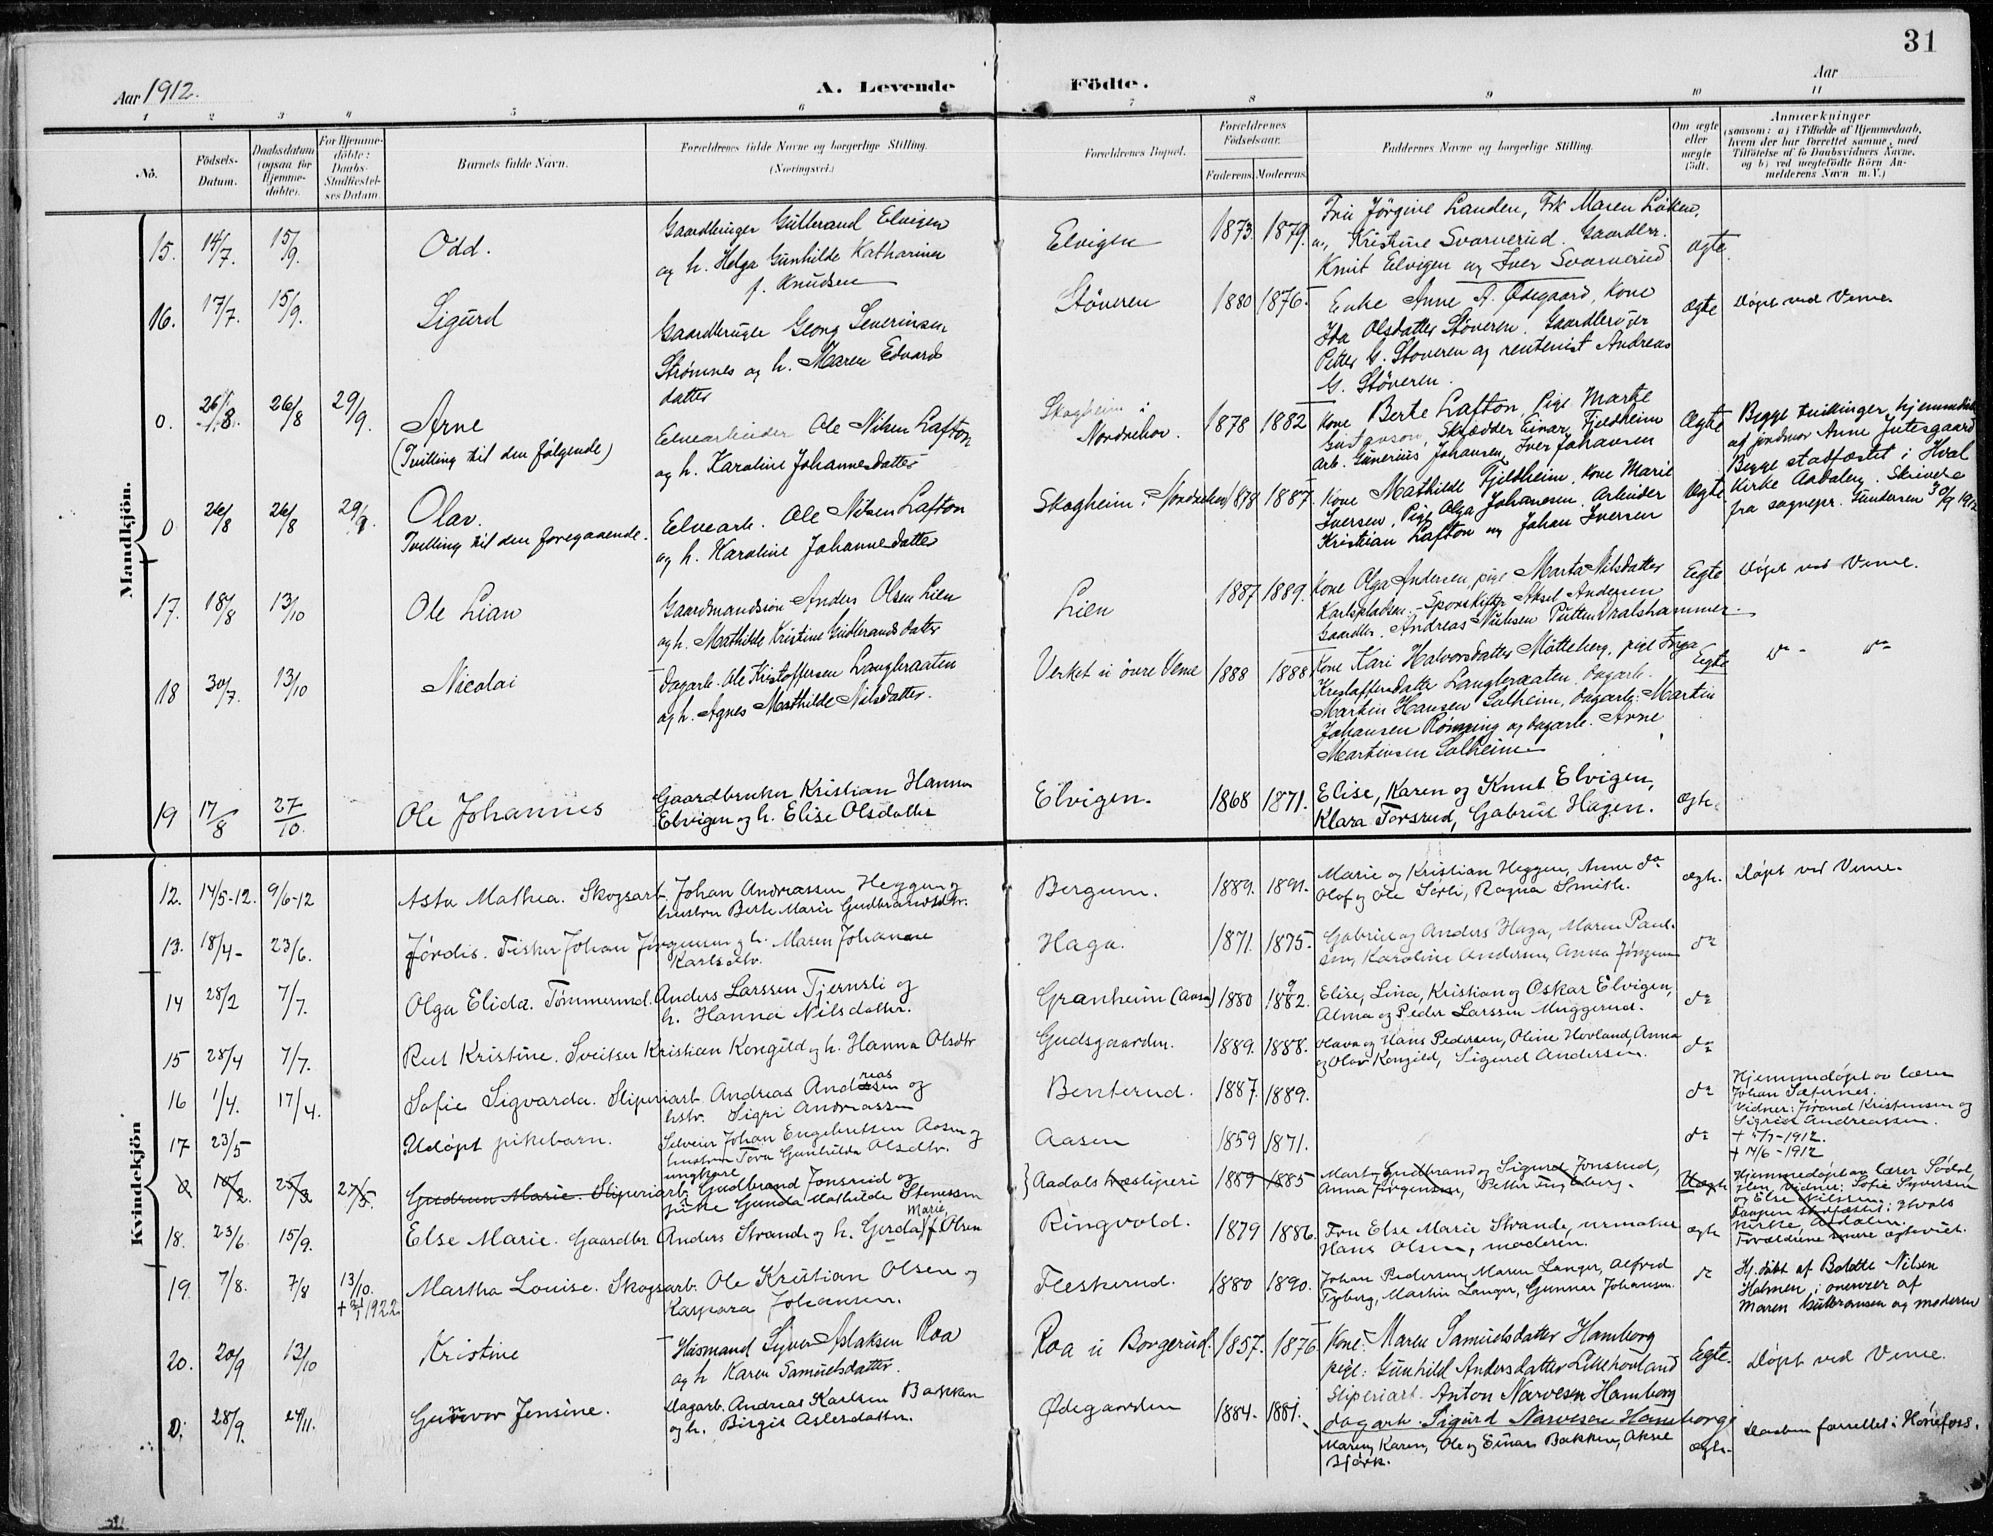 31
Aar 1912.
A. Levende
Födte.
Aar
1 2 3 4 5 6 7 8 9 10 11
No.
Födsels-Datum.
Daabsdatum (ogsaa for Hjemmedöbte).
For Hjemmedöbte: Daabs-Stadfæstelses Datum
Barnets fulde Navn.
Forældrenes fulde Navne og borgerlige Stilling. (Næringsvei.)
Forældrenes Bopæl.
Forældrenes Födselsaar.
Faderens. Moderens.
Faddernes Navne og borgerlige Stilling.
Om ægte eller uægte födt.
Anmærkninger
(saasom: a) i Tilfælde af Hjemmedaab,
hvem der har forrettet samme, med
Tilföielse af to Daabsvidners Navne,
og b) ved uægtefödte Börn An-
melderens Navn m. V.)
Mandkjön.
15. 14/7. 15/9. Odd.
Gaardbruger Gulbrand Elvigen
og h. Helga Gunhilde Katharina
f. Knudsen
Elvigen 1873. 1879.
Fru Jörgine Landen, Frk Maren Löken,
Kristine Svarverud. Gaardbr.
Knut Elvigen og Iver Svarverud
ægte.
16. 17/7. 15/9. Sigurd
Gaardbruger Georg Severinsen
Strømnes og h. Maren Edvards
datter
Støveren 1880 1876.
Enke Anne A. Ødegaard, Kone
Ida Olsdatter Støveren. Gaardbruger
Petter G. Støveren og rentenist Andreas
G. Støveren.
Ægte Døpt ved Veme.
0. 26/8. 26/8 29/9. Arne
(Tvilling til den følgende)
Elvearbeider Ole Nilsen Lafton
og h. Karoline Johannesdatter
Skogheim i
Nordrehov. 1878 1882
Kone Berte Lafton, Pige Marte
Gustavson, Skrædder Einar Fjeldheim
arb. Gunerius Johansen, Iver Johansen
Ægte
Begge tvillinger hjemmedøbt
af jordmor Anne Jutesgaard
Begge stadfæstet i Hval
Kirke Aadalen. Skrivelse
fra sognepr. Gundersen 30/9 1912
0 26/8 26/8 29/9. Olav.
Tvilling til den foregaaende.
Elvearb. Ole Nilsen Lafton
og h. Karoline Johannesdatter
Skogheim i Nordrehov 1878 1887.
Kone Mathilde Fjeldheim, Kone Marie
Iversen, Pige Olga Johansen. Arbeider
Kristian Lafton og Johan Iversen
Ægte
17. 18/8 13/10 Ole Lian
Gaardmandssøn Anders Olsen Lien
og h. Mathilde Kristine Gudbrandsdatter
Lien 1887 1889.
Kone Olga Andersen, pige Marta Nilsdatter
Karlspladsen. Sporskifter Aksel Andersen
Gaardbr. Andreas Nielsen Putten Vralshammer.
Egte Døpt ved Veme.
18 30/7. 13/10 Nicolai
Dagarb. Ole Kristoffersen Langbraaten
og h. Agnes Mathilde Nilsdatter.
Verket u övre Veme 1888 1888
Kone Kari Halvorsdatter Møtteberg, pige Inga
Kristoffersdatter Langbraaten. Dagarb.
Martin Hansen Solheim, Dagarb. Martin
Johansen Rønning og Dagarb. Arne
Martinsen Solheim
Egte do do
19 17/8 27/10. Ole Johannes
Gaardbruker Kristian Hansen
Elvigen og h. Elise Olsdatter
Elvigen. 1868 1871.
Elise, Karen og Knut Elvigen,
Klara Forsrud, Gabriel Hagen.
ægte.
Kvindekjön
12. 14/5-12. 9/6-12 Asta Mathea. Skogsarb. Johan Andreassen Heggen og
hustru Berte Marie Gudbrandsdtr.
Bergum. 1889. 1891.
Marie og Kristian Heggen, Anne do
Olof og Ole Sørli, Ragna Smith.
ægte. Døpt ved Veme.
13. 18/4- 23/6. Jørdis. Fisker Johan Jørgensen og h. Maren Johanne
Karlsdtr.
Haga. 1871. 1875.
Gabriel og Anders Haga, Maren Paul-
sen, Karoline Andersen, Anna Jørgensen
do
14 28/2 7/7. Olga Elida. Tømmermd. Anders Larssen Tjernsli og
h. Hanna Nilsdatter.
Granheim (Aasen) 1880 1882.
Elise, Lina, Kristian og Oskar Elvigen,
Alma og Peder Larssen Muggerud.
do
15 28/4 7/7. Rut Kristine. Sveitser Kristian Kongild og h. Hanna Olsdtr
Gudsgaarden. 1889. 1888.
Olava og Hans Pedersen, Oline Hovland, Anna
og Olav Kongild, Sigurd Andersen.
do
16 1/4. 17/4. Sofie Sigvarda. Sliperiarb. Andreas Andreassen og
hstr. Sigri Andreassen
Benterud. 1887. 1889.
do
Hjemmedøpt av lærer
Johan Sæternes.
Vidner: Jørand Kristensen og
Sigrid Andreassen.
17 23/5 Udöpt pikebarn.
Selveier Johan Engebretsen Aasen og
hustru Tova Gunhilda Olsdtr.
Aasen 1859 1871.
do
+ 14/6 - 1912
27/5. Gudrun Marie. Sliperiarb. ungkare Gudbrand Jonsrud og
pike Gunda Mathilde Stenessen
Aadals træsliperi 1889 1885
Mart, Gudbrand og Sigurd Jonsrud,
Anna Jørgensen, Petter Fingleberg.
Uægte
Hjemmedøpt av lærer Sødol,
Vidner: Sofie Syversen
og Else Nilssen.
Daapen stadfæstet i Hvals
kirke, Aadalen.
Forældrene senere egteviet.
18. 23/6. 15/9. Else Marie. Gaardbr. Anders Strande og h. Gerda Marie f. Olsen
Ringvold. 1879 1886.
Fru Else Marie Strande, urmaker
Hans Olsen, moderen.
ægte
19. 7/8. 7/8 13/10. Martha Louise. Skogsarb. Ole Kristian Olsen og
Kaspara Johansen.
1922
Fleskerud. 1880 1890.
Johan Pedersen, Maren Langer, Alfred
Tyberg, Martin Langer, Gunnar Johansen.
do
Hj. döbt af Boldte Nilsen
Holmen, i overvær af
Maren Gulbransen og moderen
20. 20/9 13/10 Kristine
Husmand Syver Aslaksen Roa
og h Karen Samuelsdatter.
Roa u Borgerud. 1857. 1876
Kone: Maren Samuelsdatter Hamborg
pige: Gunhild Andersdatter Lillehovland
Sliperiarb. Anton Narvesen Hamborg
dagarb. Sigurd Narvesen Hamborg
Egte. Døpt ved Veme.
0. 28/9. 24/11. Gunvor Jensine.
Dagarb. Andreas Karlsen Bakken
og h. Birgit Aslersdatter.
Ødegaarden 1884. 1881.
Maren, Karen, Ole og Einar Bakken, Aksel
Björk.
ægte. Daaben forrettet i Hønefoss.